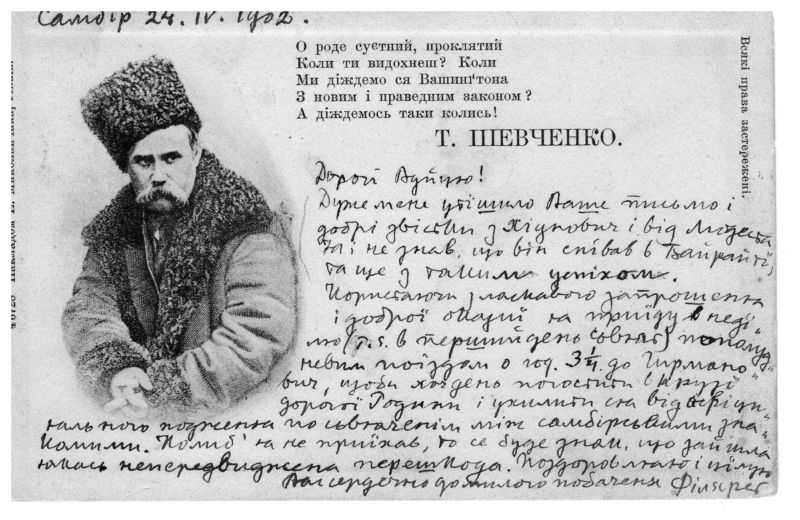 Самбір 24. IV. 1902.
О роде суєтний, проклятий
Коли ти видохнеш? Коли
Ми діждемо ся Вашинґтона
З новим і праведним законом?
А діждемось таки колись!
Т. ШЕВЧЕНКО.
Всякі права застережені.
Дорогі Вуйцю!
Дуже мене утїшило Ваше письмо і
добрі звістки з Хіднович і від Модеста
Я і не знав, що він співав в Байрайтї,
та ще з таким успіхом.
Користаючи з ласкавого запрошення
і доброї оказиї я приїду в недї„
лю (т. є. в перший день сьвят) пополуд„
невим поїздом о год. 3 1/4 до Гирмано„
вич, щоби хоч день погостити в крузї
дорогої Родини і ухилити ся від
ного ходження по сьвяченім між самбірськими зна„
комими. Колиб я не приїхав, то се буде знак, що зайшла
якась непередвиджена перешкода. Поздоровляю і цїлую
Вас сердечно до милого побаченя Філярет